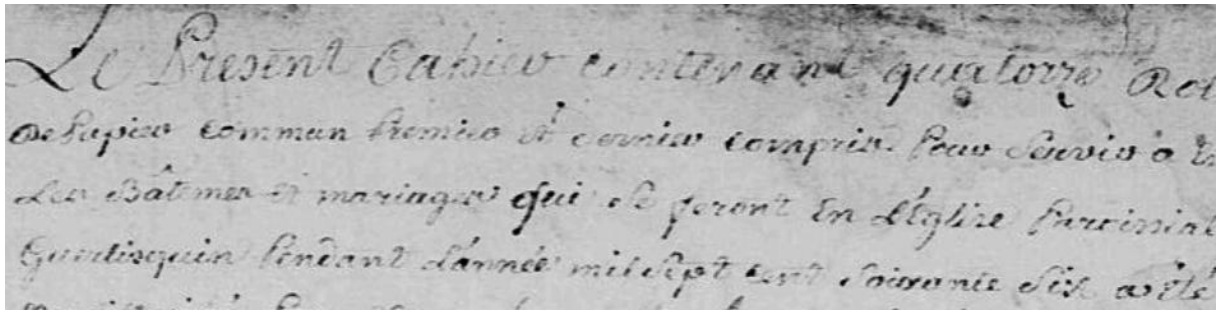 Le Present Cahier contenant quatorze Rol
De Papier commun Premier et dernier compris Pour Servir a
Les Bâtemes et mariages qui se feront En L'Eglise Paroissial
Guerlisquin Pendant L'année mil sept cent soixante six a été